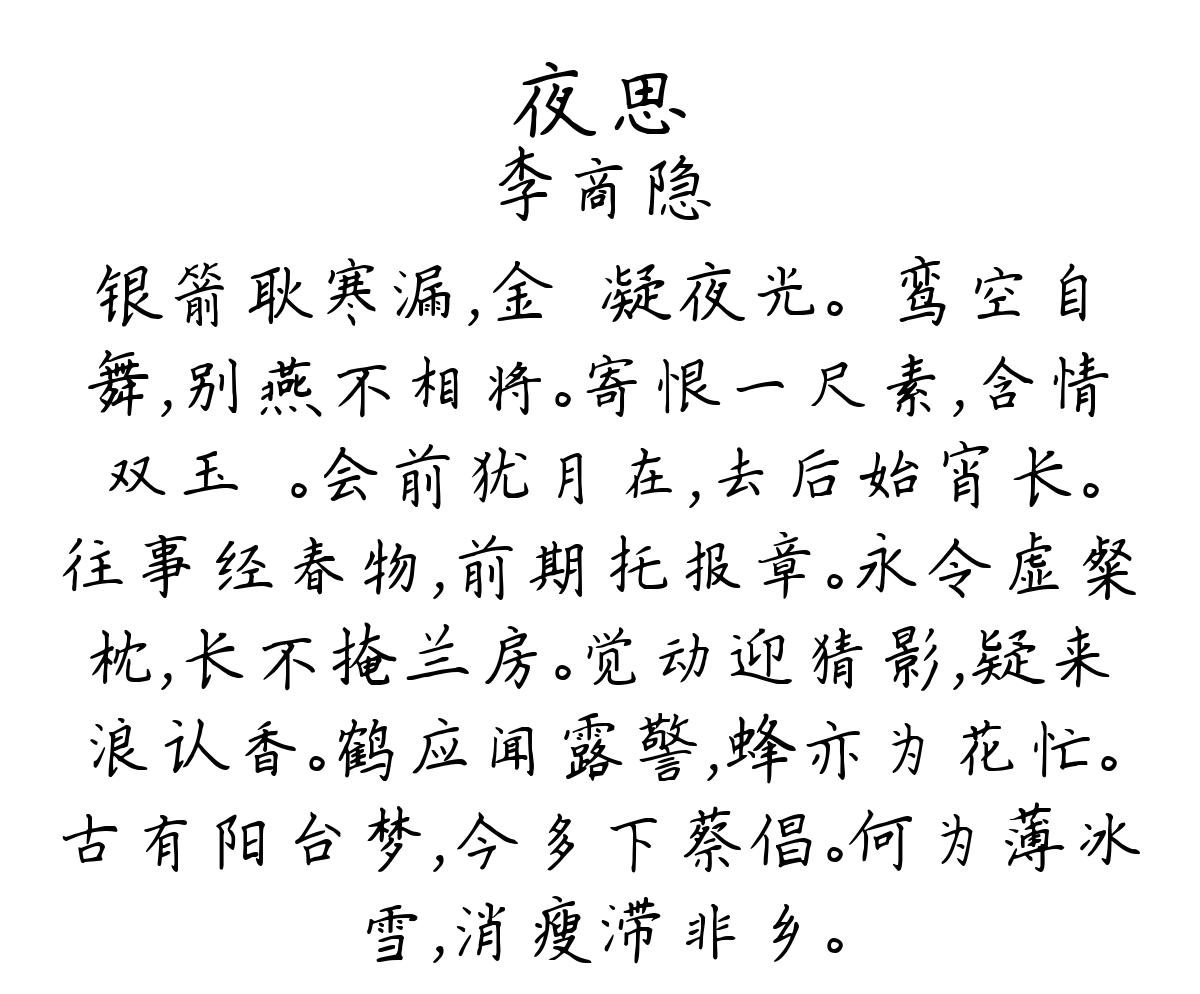 夜思
李商隐
银箭耿寒漏,金 凝夜光。鸾空自
舞,别燕不相将。寄恨一尺素,含情
双玉 。会前犹月在,去后始宵长。
往事经春物,前期托报章。永令虚粲
枕,长不掩兰房。觉动迎猜影,疑来
浪认香。鹤应闻露警,蜂亦为花忙。
古有阳台梦,今多下蔡倡。何为薄冰
雪,消瘦滞非乡。